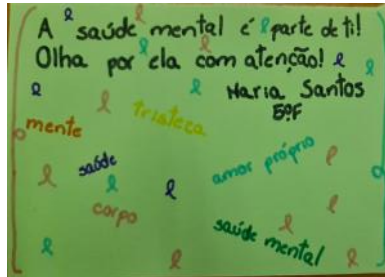 A saúde mental é parte de ti!
Olha por ela com atenção!
Maria Santos
5ºF
tristeza
mente
saúde
amor próprio
corpo
saúde mental